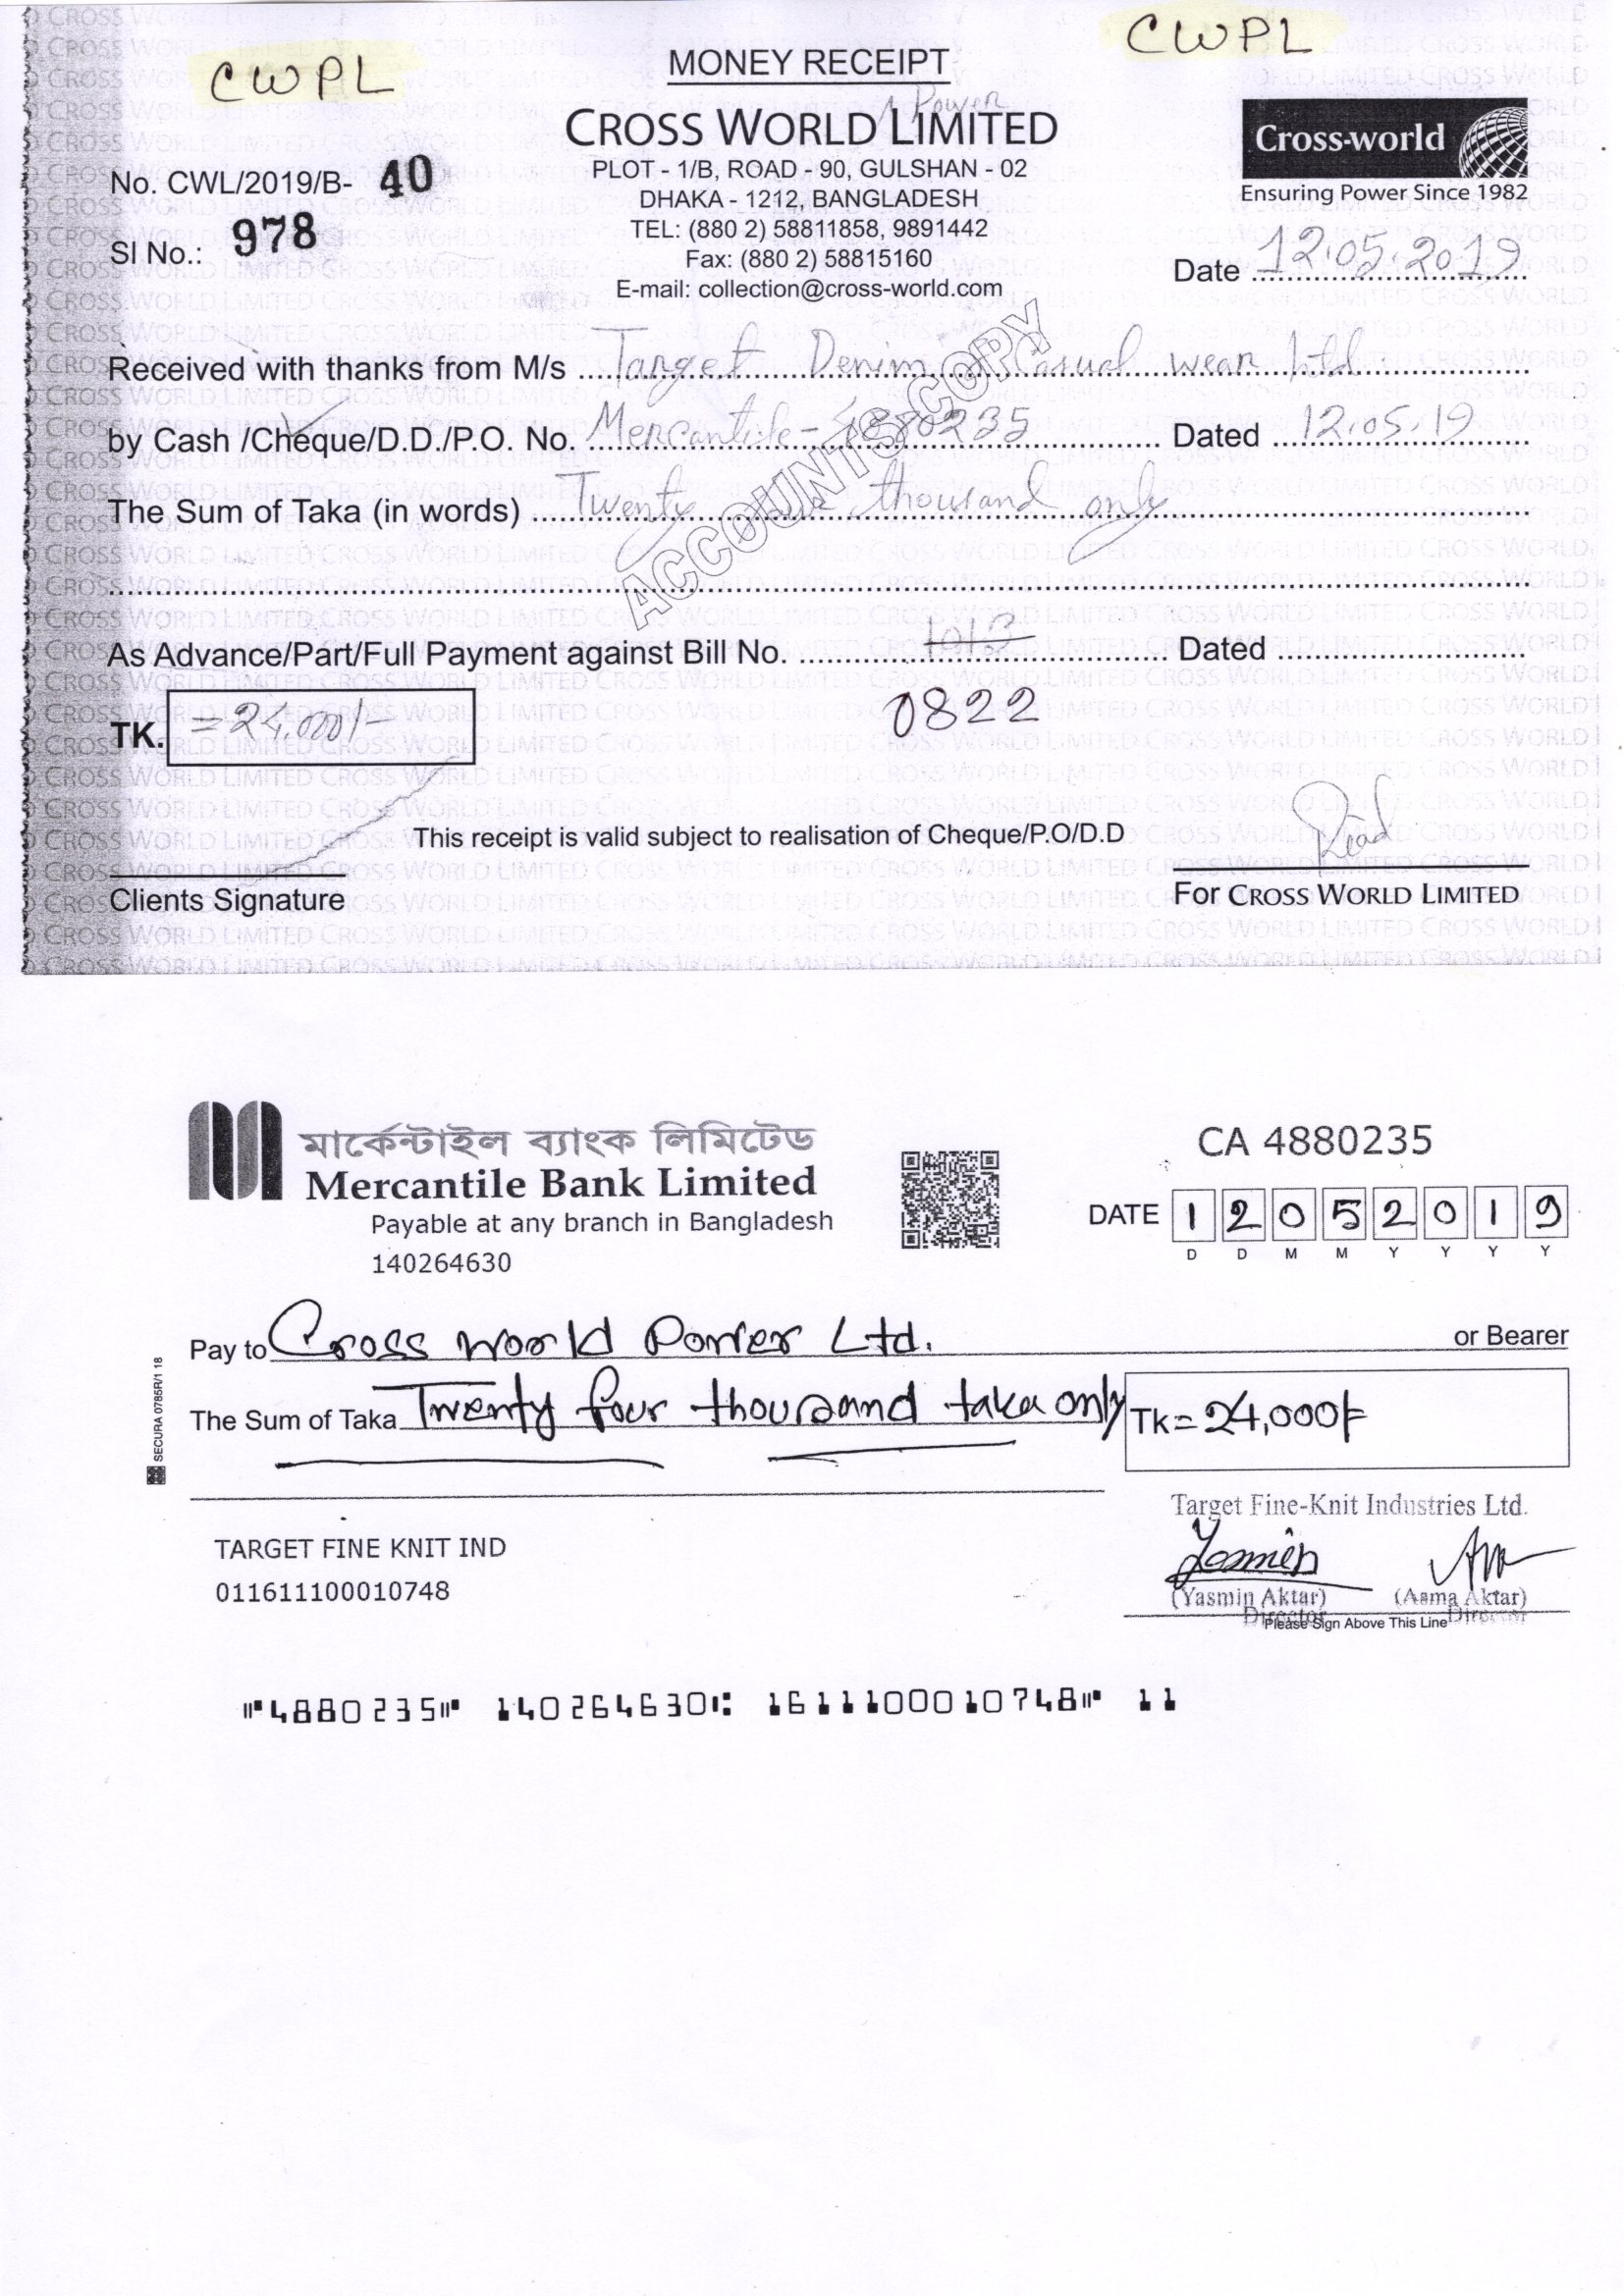 CWPL
CWPL
MONEY RECEIPT
Power
CROSS WORLD LIMITED
Cross-world
Ensuring Power Since 1982
PLOT - 1/B, ROAD - 90, GULSHAN - 02
DHAKA - 1212, BANGLADESH
TEL: (880 2) 58811858, 9891442
Fax: (880 2) 58815160
E-mail: collection@cross-world.com
No. CWL/2019/B- 40
Sl No.: 978
Date 12.05.2019
Received with thanks from M/s Target Denim & Casual wear Ltd
by Cash /Cheque/D.D./P.O. No. Mercantile - 4880235 Dated 12.05.19
The Sum of Taka (in words) Twenty four thousand only
ACCOUNTS COPY
As Advance/Part/Full Payment against Bill No. Dated
0822
TK. =24,000/-
This receipt is valid subject to realisation of Cheque/P.O/D.D
Clients Signature
For CROSS WORLD LIMITED
মার্কেন্টাইল ব্যাংক লিমিটেড
Mercantile Bank Limited
Payable at any branch in Bangladesh
140264630
CA 4880235
DATE 1 2 0 5 2 0 1 9
D D M M Y Y Y Y
Pay to Cross World Power Ltd. or Bearer
The Sum of Taka Twenty four thousand taka only Tk = 24,000/=
SECURA 0785R/1 18
Target Fine-Knit Industries Ltd.
TARGET FINE KNIT IND
011611100010748
(Yasmin Aktar) (Asma Aktar)
Director Director
Please Sign Above This Line
⑈4880235⑈ 140264630⑆ 1611100010748⑈ 11